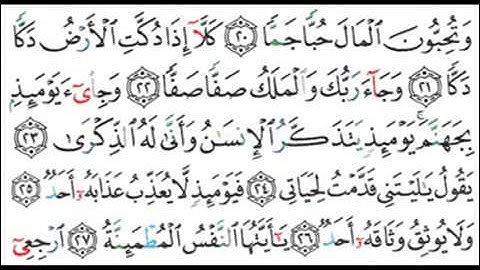 وَتُحِبُّونَ ٱلْمَالَ حُبًّا جَمًّا ٢٠ كَلَّآ إِذَا دُكَّتِ ٱلْأَرْضُ دَكًّا
دَكًّا ٢١ وَجَآءَ رَبُّكَ وَٱلْمَلَكُ صَفًّا صَفًّا ٢٢ وَجِا۟ىٓءَ يَوْمَئِذٍۭ
بِجَهَنَّمَ ۚ يَوْمَئِذٍ يَتَذَكَّرُ ٱلْإِنسَـٰنُ وَأَنَّىٰ لَهُ ٱلذِّكْرَىٰ ٢٣
يَقُولُ يَـٰلَيْتَنِى قَدَّمْتُ لِحَيَاتِى ٢٤ فَيَوْمَئِذٍ لَّا يُعَذِّبُ عَذَابَهُۥٓ أَحَدٌ ٢٥
وَلَا يُوثِقُ وَثَاقَهُۥٓ أَحَدٌ ٢٦ يَـٰٓأَيَّتُهَا ٱلنَّفْسُ ٱلْمُطْمَئِنَّةُ ٢٧ ٱرْجِعِىٓ